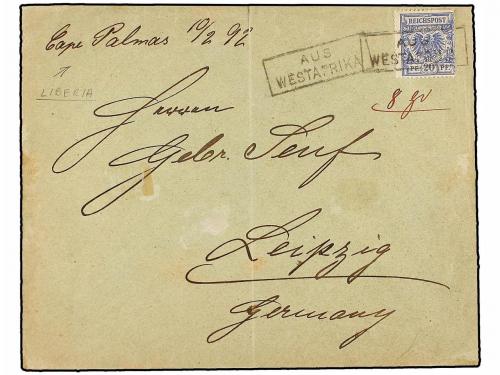 Cape Palmas 10/2 92
LIBERIA
AUS
WESTAFRIKA
REICHSPOST
AUS
WESTAFRIKA
PF 20 PF
8 gr
Herren
Gebr. Senf
Leipzig
Germany